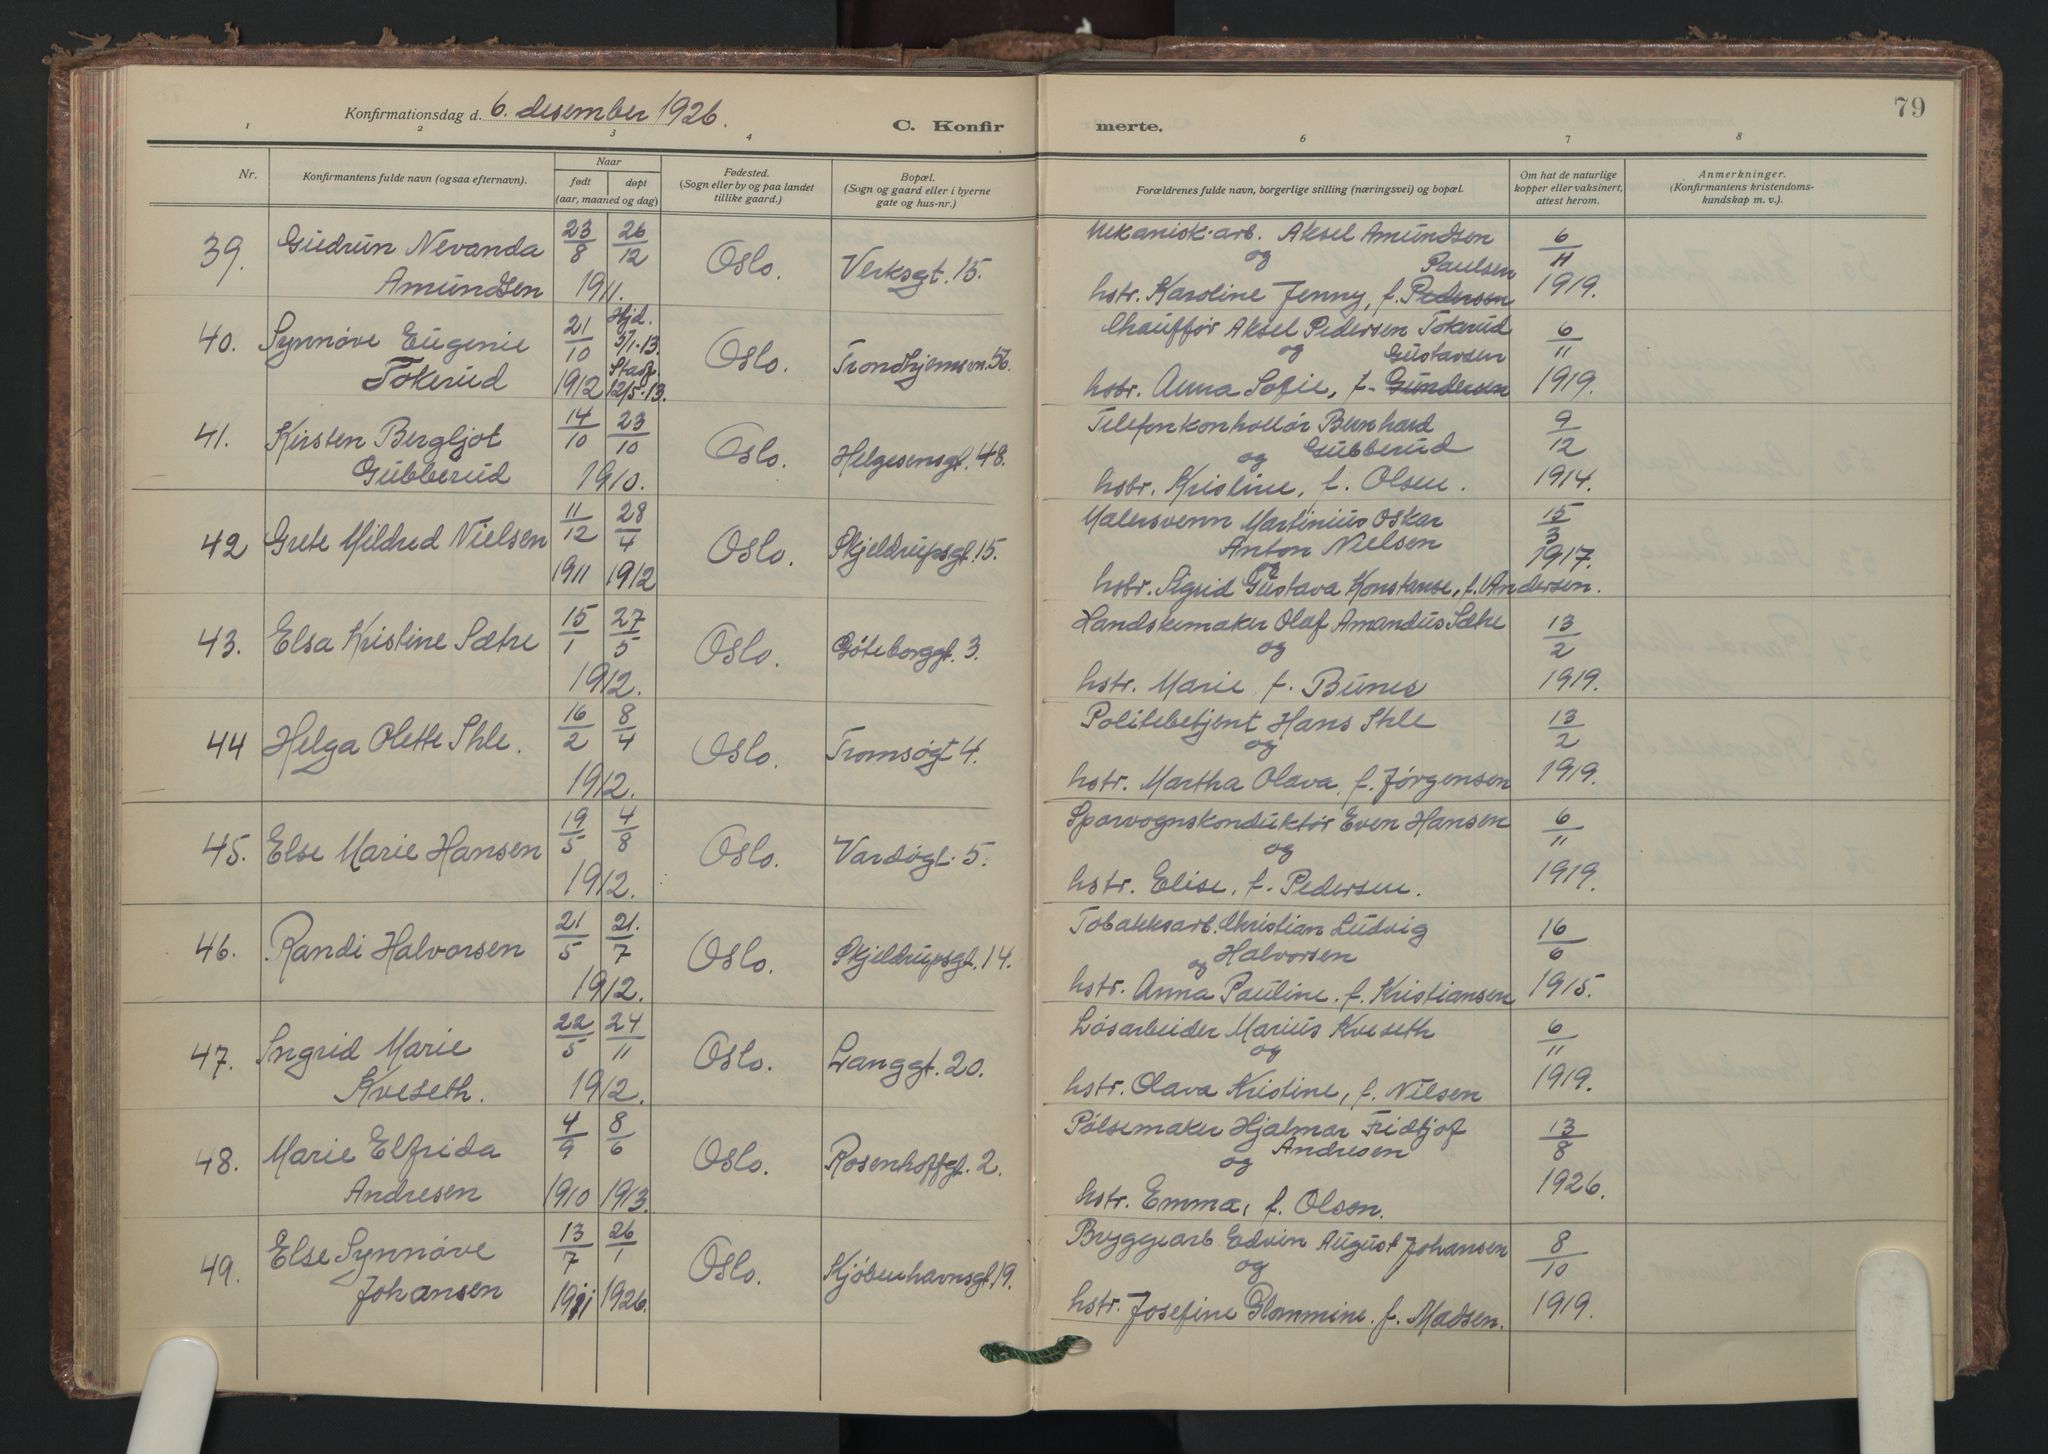 79
Konfirmationsdag d. 6. desember 1926.
C. Konfirmerte.
1 2 3 4 6 7 8
Nr.
Konfirmantens fulde navn (ogsaa efternavn).
Naar
født døpt
(aar, maaned og dag)
Fødested.
(Sogn eller by og paa landet
tillike gaard.)
Bopæl.
(Sogn og gaard eller i byerne
gate og hus-nr.)
Forældrenes fulde navn, borgerlige stilling (næringsvei) og bopæl.
Om hat de naturlige
kopper eller vaksinert,
attest herom.
Anmerkninger.
(Konfirmantens kristendoms-
kundskap m. v.).
39. Gudrun Nevanda
Amundsen
23/8 26/12
1911.
Oslo. Verksgt. 15.
Mekanisk. arb. Aksel Amundsen
og Paulsen
hstr. Karoline Jenny, f. Pedersen
6/11
1919.
40. Synnøve Eugenie
Tokerud
21/10
1912
Hjd.
3/1-13.
Stadf.
12/5-13.
Oslo. Trondhjemsv. 56.
Chauffør Aksel Pedersen Tokerud
og Gustavsen
hstr. Anna Sofie, f. Gundersen
6/11
1919.
41. Kirsten Bergljot
Gubberud
14/10 23/10
1910.
Oslo. Helgesensgt. 48.
Telefonkontrollør Bernhard
og Gubberud
hstr. Kristine, f. Olsen.
9/12
1914.
42 Grete Mildred Nielsen
11/12 28/4
1911 1912
Oslo. Skjeldrupsgt. 15.
Malersvenn Martinius Oskar
Anton Nielsen
og
hstr. Sigrid Gustava Konstanse, f. Andersen.
15/3
1917.
43. Elsa Kristine Sætre
15/1 27/5
1912.
Oslo. Gøteborggt. 3.
Handskemaker Olaf Amandus Sætre
og
hstr. Marie f. Bunes
13/2
1919.
44 Helga Olette Ihle.
16/2 8/4
1912.
Oslo. Tromsøgt 4.
Politibetjent Hans Ihle
og
hstr. Martha Olava, f. Jørgensen
13/2
1919.
45. Else Marie Hansen
19/5 4/8
1912.
Oslo. Vardøgt. 5.
Sporvognskonduktør Even Hansen
og
hstr. Elise, f. Pedersen.
6/11
1919.
46. Randi Halvorsen
21/5 21./7
1912.
Oslo. Skjeldrupsgt. 14.
Tobakksarb. Christian Ludvig
og Halvorsen
hstr. Anna Pauline. f. Kristiansen
16/6
1915.
47. Ingrid Marie
Kveseth.
22/5 24/11
1912.
Oslo. Langgt. 20.
Løsarbeider Marius Kveseth
og
hstr. Olava Kristine, f. Nilsen
6/11
1919.
48. Marie Elfrida
Andresen
4/9 8/6
1910 1913.
Oslo. Rosenhoffgt. 2.
Pølsemaker Hjalmar Fridtjof
og Andresen
hstr. Emma, f. Olsen.
13/8
1926.
49. Else Synnøve
Johansen
13/7 26/1
1911 1926.
Oslo. Kjøbenhavnsgt. 19.
Bryggearb Edvin August Johansen
og
hstr. Josefine Glommine. f. Madsen.
8/10
1919.